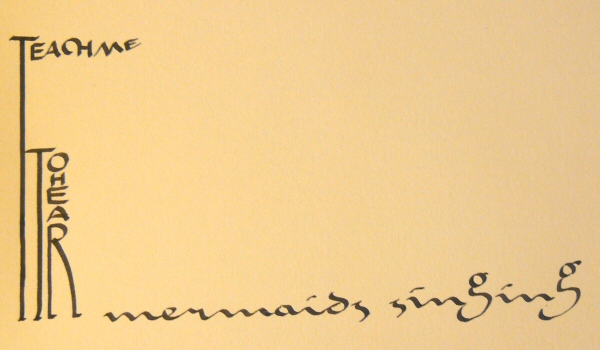 TEACH ME
TO HEAR
mermaids singing